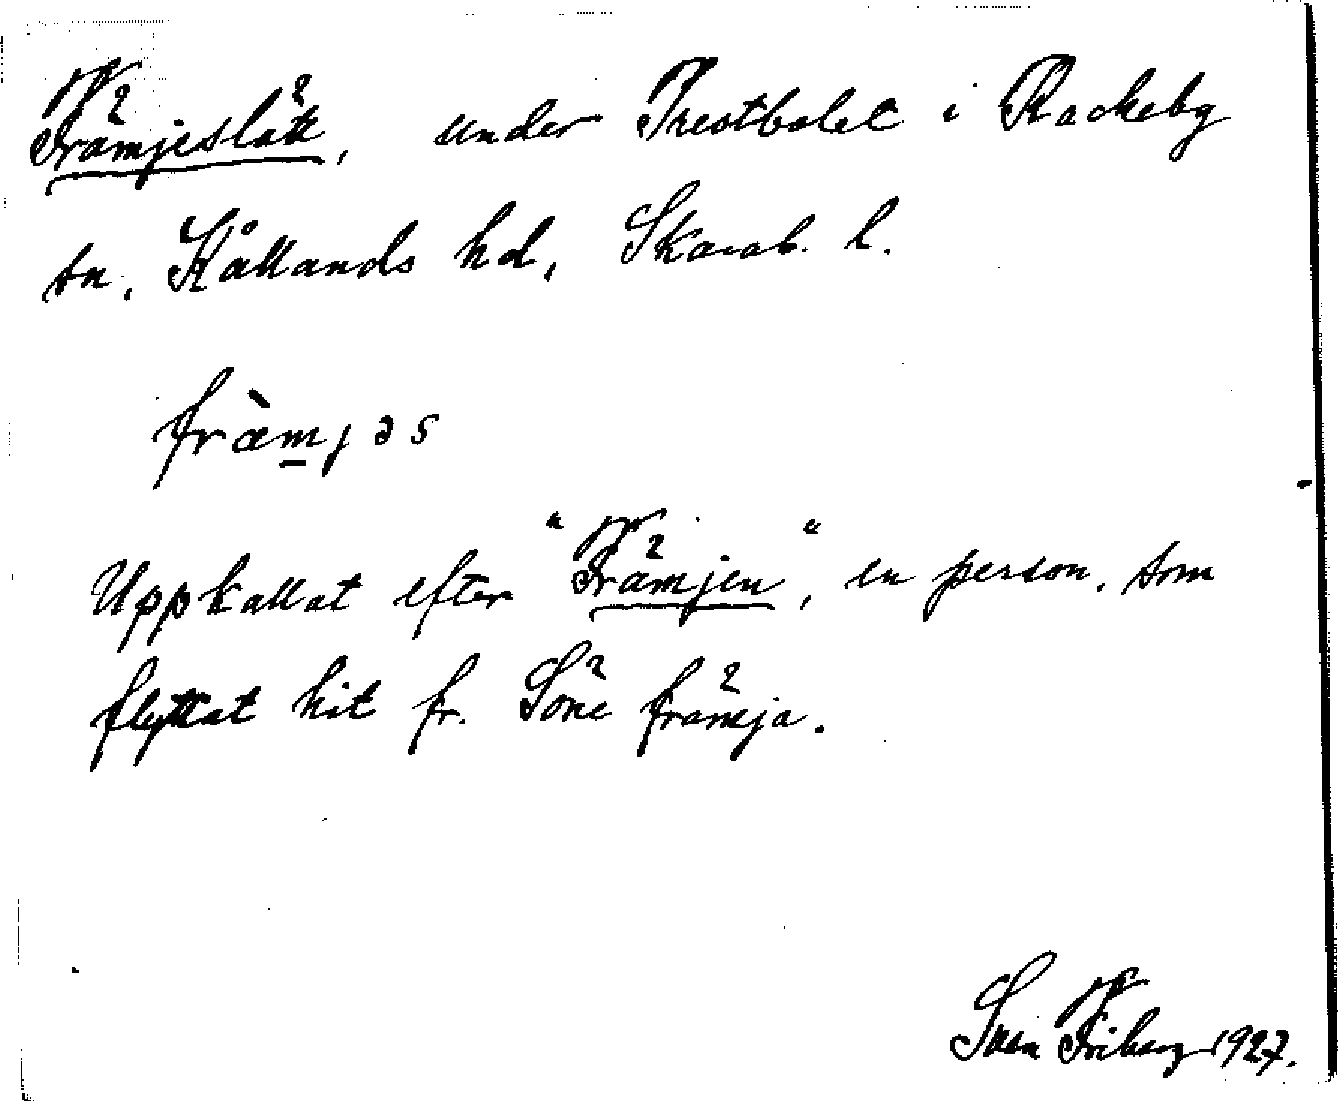 Främjeslätt, under Prestbolet i Rackeby
sn, Kållands hd, Skarab. l.
främjəs
Uppkallat efter "Främjen", en person, som
flyttat hit fr. Söne främja.
Sven Friberg 1927.